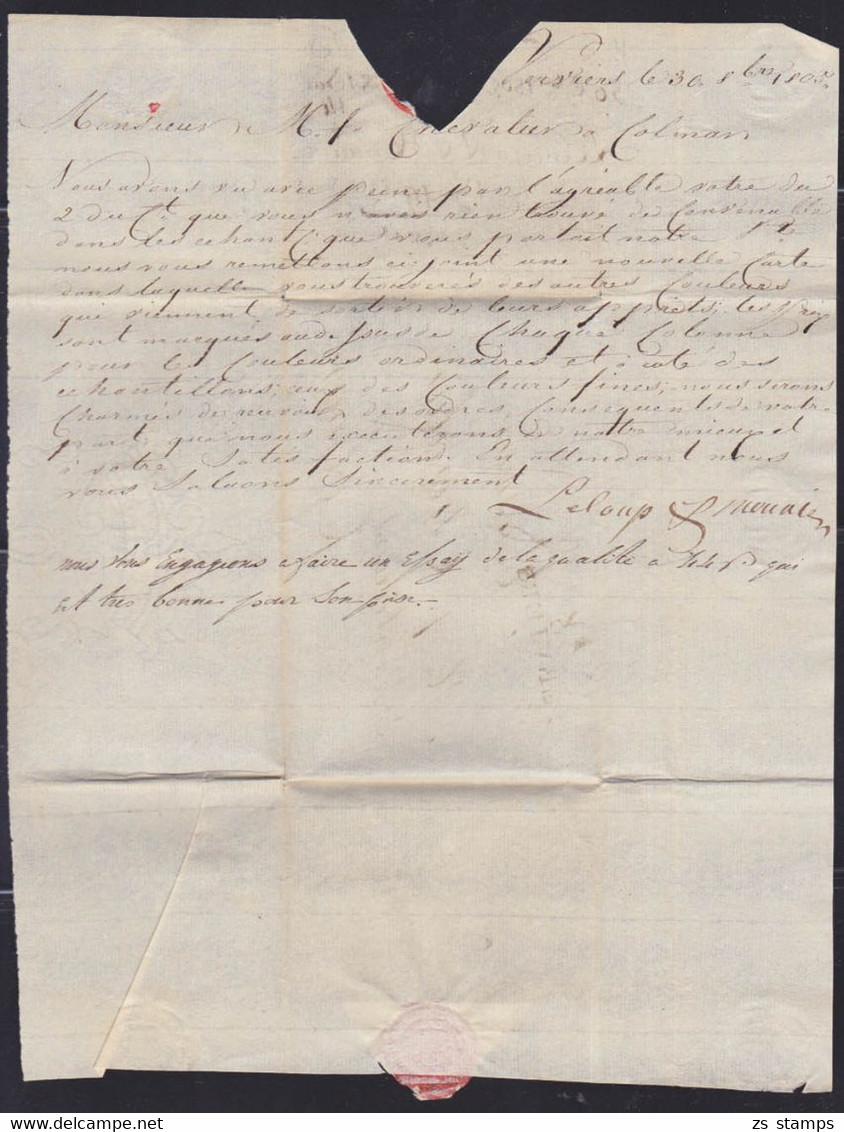 Verviers le 30. 8bre 1805.
Monsieur M. f. Chevalier à Colmar
Nous avons vu avec peine par l'agréable votre du
2 du Ct que vous n'avés rien trouvé de Convenable
dans les echantns que vous portait notre
nous vous remettons ci joint une nouvelle Carte
dans laquelle vous trouverés des autres Couleurs
qui viennent de sortir de leurs apprets, les prix
sont marqués au dessus de Chaque Colonne
pour les Couleurs ordinaires et à coté des
echantillons, aux des Couleurs fines, nous serons
Charmés de recevoir des ordres Consequents de votre
part que nous executerons de notre mieux et
à votre satisfaction. En attendant nous
vous Saluons Sincerement
Leloup &
nous vous Engageons a faire un Essay de la qualité a qui
est tres bonne pour Son prix.
www.delcampe.net
zs stamps